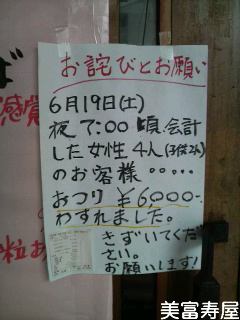 お詫びとお願い
6月19日(土)
夜7:00頃.会計
した女性4人(子供2人)
のお客様・・・・・
おつり ¥6,000-.
わすれました。
きずいてくだ
さい。
お願いします!
感賞
粒お
美富寿屋